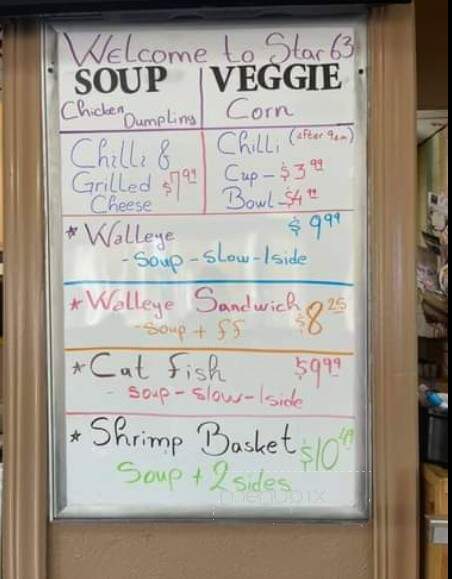 Welcome to Star 63
SOUP
Chicken
Dumpling
VEGGIE
Corn
Chilli &
Grilled $7.99
Cheese
Chilli (after 9am)
Cup - $3.99
Bowl - $4.99
* Walleye $9.99
- Soup - Slow - 1 side
* Walleye Sandwich $8.25
- Soup + ff
* Cat fish $9.99
- soup - slow - 1 side
* Shrimp Basket $10.49
Soup + 2 sides
menupix